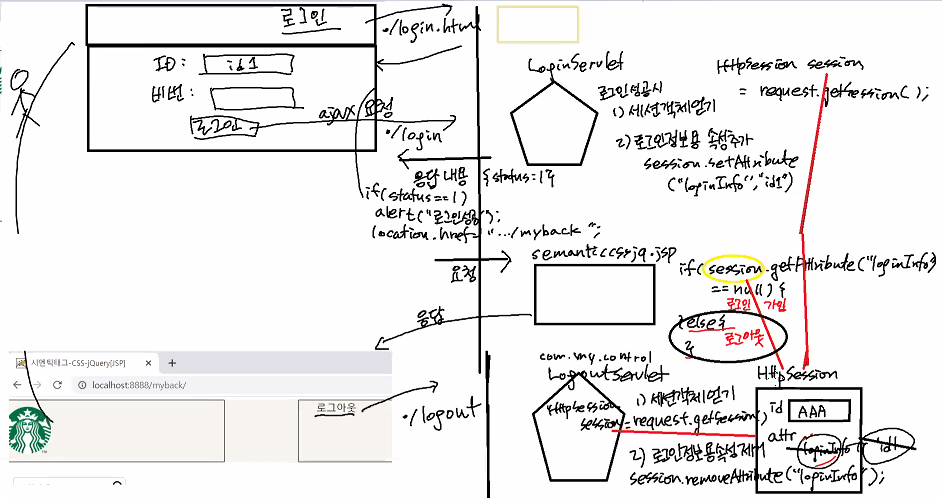 로그인
./login.html
ID: id1
비번:
로그인
ajax 요청
./login
응답내용 {status=1}
if(status==1)
alert("로그인성공");
location.href=".../myback";
요청
응답
LoginServlet
로그인성공시
1) 세션객체얻기
2) 로그인정보용 속성추가
session.setAttribute
("loginInfo","id1")
HttpSession session
= request.getSession();
semanticcssjq.jsp
if(session.getAttribute("loginInfo")
==null) {
로그인 가입
}else{
로그아웃
}
시멘틱태그-CSS-jQuery[JSP]
localhost:8888/myback/
로그아웃
./logout
com.my.control
LogoutServlet
1) 세션객체얻기
HttpSession
session=request.getSession();
2) 로그인정보용속성제거
session.removeAttribute("loginInfo");
HttpSession
id AAA
attr
loginInfo id1